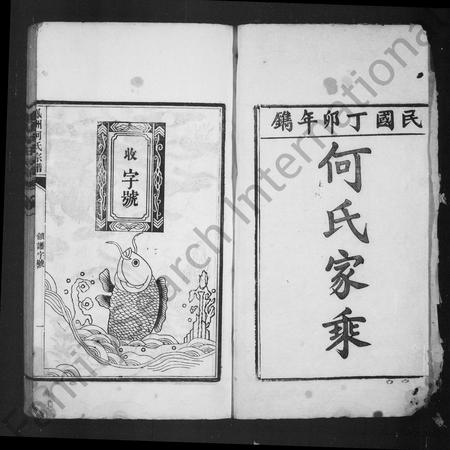 民國丁卯年鐫
何氏家乘
收
字號
領譜字號
一
Family Search International